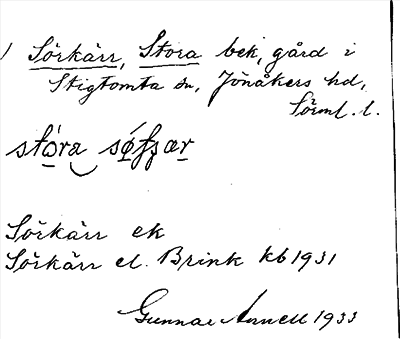 Sörkärr, Stora bek, gård i
Stigtomta sn, Jönåkers hd,
Sörml. l.
stóra sø̀fɟær
Sörkärr ek
Sörkärr el. Brink kb 1931
Gunnar Arnell 1933